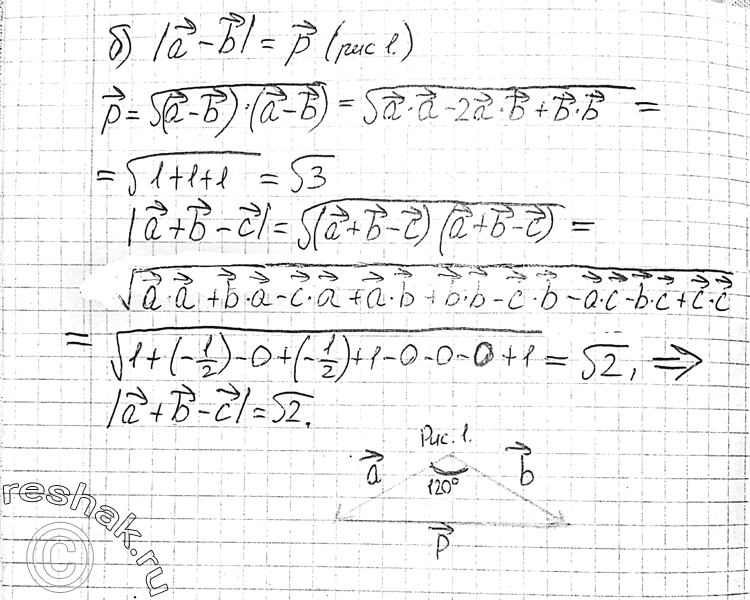 б) |a⃗ - b⃗| = p⃗ (рис 1.)
p⃗ = √(a⃗ - b⃗)·(a⃗ - b⃗) = √a⃗·a⃗ - 2a⃗·b⃗ + b⃗·b⃗ =
= √1+1+1 = √3
|a⃗ + b⃗ - c⃗| = √(a⃗ + b⃗ - c⃗)(a⃗ + b⃗ - c⃗) =
√a⃗·a⃗ + b⃗·a⃗ - c⃗·a⃗ + a⃗·b⃗ + b⃗·b⃗ - c⃗·b⃗ - a⃗·c⃗ - b⃗·c⃗ + c⃗·c⃗
= √1+(-1/2)-0+(-1/2)+1-0-0-0+1 = √2, ⇒
|a⃗ + b⃗ - c⃗| = √2.
Рис. 1.
a⃗ 120° b⃗
p⃗
reshak.ru
©